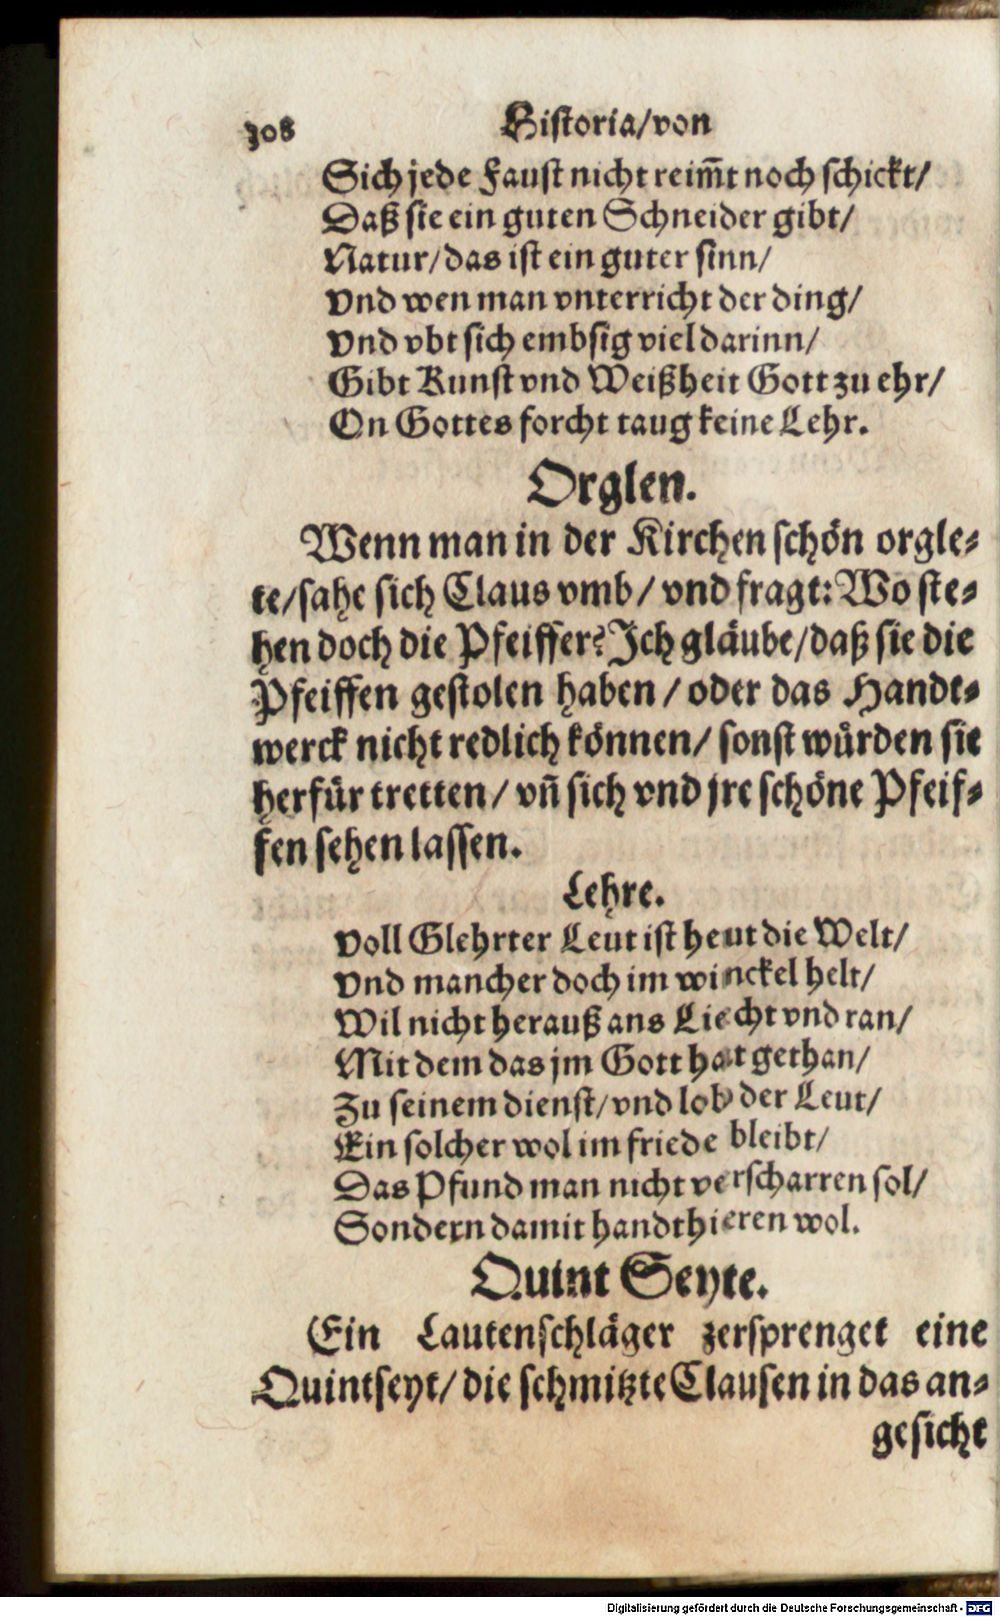 308 Historia/von
Sich jede Faust nicht reim̃t noch schickt/
Daß sie ein guten Schneider gibt/
Natur/das ist ein guter sinn/
Vnd wen man vnterricht der ding/
Vnd vbt sich embsig viel darinn/
Gibt Kunst vnd Weißheit Gott zu ehr/
On Gottes forcht taug keine Lehr.
Orglen.
Wenn man in der Kirchen schön orgle-
te/sahe sich Claus vmb/ vnd fragt: Wo ste-
hen doch die Pfeiffer? Ich gläube/daß sie die
Pfeiffen gestolen haben/ oder das Handt-
werck nicht redlich können/ sonst würden sie
herfür tretten/ vñ sich vnd jre schöne Pfeif-
fen sehen lassen.
Lehre.
Voll Glehrter Leut ist heut die Welt/
Vnd mancher doch im winckel helt/
Wil nicht herauß ans Liecht vnd ran/
Mit dem das jm Gott hat gethan/
Zu seinem dienst/vnd lob der Leut/
Ein solcher wol im friede bleibt/
Das Pfund man nicht verscharren sol/
Sondern damit handthieren wol.
Quint Seyte.
Ein Lautenschläger zersprenget eine
Quintseyt/ die schmitzte Clausen in das an-
gesicht
Digitalisierung gefördert durch die Deutsche Forschungsgemeinschaft - DFG